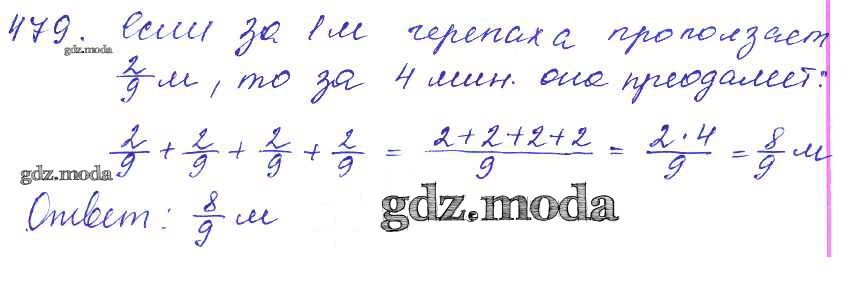 479. Если за 1 м черепаха проползает
gdz.moda
2/9 м, то за 4 мин. она преодолеет:
2/9 + 2/9 + 2/9 + 2/9 = 2+2+2+2/9 = 2·4/9 = 8/9 м
gdz.moda
Ответ: 8/9 м
gdz.moda